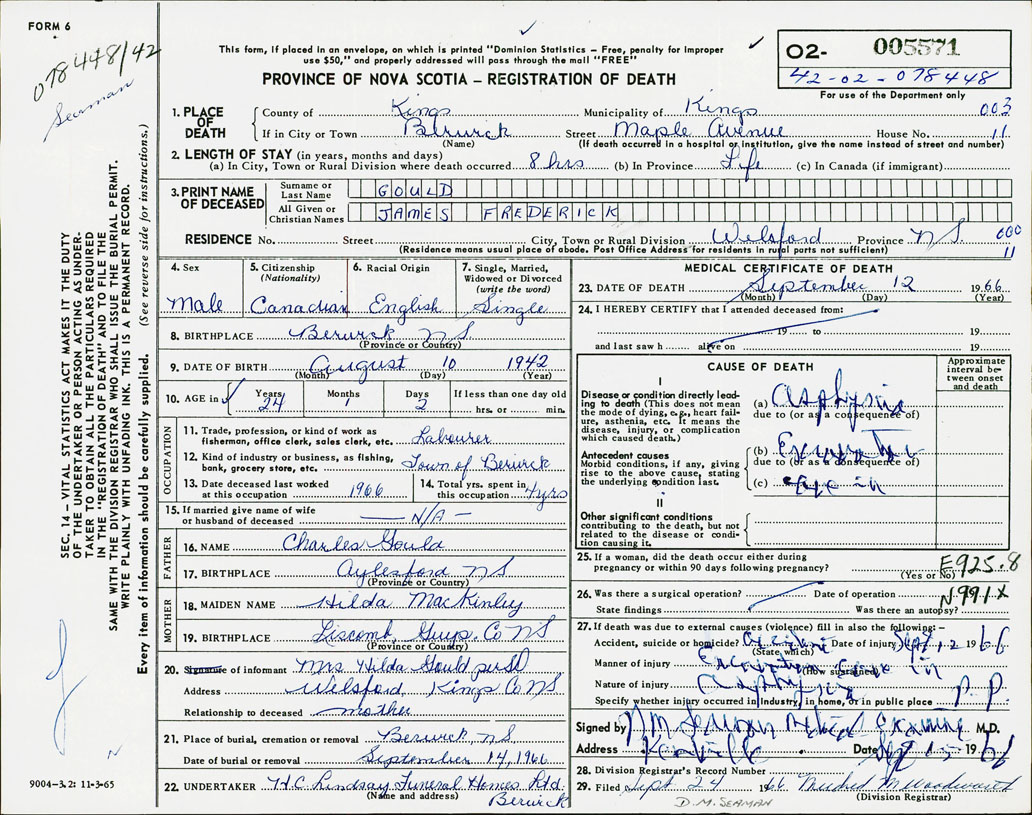 FORM 6
078448/42
Seaman
This form, if placed in an envelope, on which is printed "Dominion Statistics – Free, penalty for improper
use $50," and properly addressed will pass through the mail "FREE"
PROVINCE OF NOVA SCOTIA – REGISTRATION OF DEATH
02- 005571
42-02-078448
For use of the Department only
SEC. 14 – VITAL STATISTICS ACT MAKES IT THE DUTY
OF THE UNDERTAKER OR PERSON ACTING AS UNDER-
TAKER TO OBTAIN ALL THE PARTICULARS REQUIRED
IN THE "REGISTRATION OF DEATH" AND TO FILE THE
SAME WITH THE DIVISION REGISTRAR WHO SHALL ISSUE THE BURIAL PERMIT.
WRITE PLAINLY WITH UNFADING INK. THIS IS A PERMANENT RECORD.
Every item of information should be carefully supplied. (See reverse side for instructions.)
1. PLACE OF DEATH
County of Kings Municipality of Kings 003
If in City or Town Berwick Street Maple Avenue House No. 11
(Name) (If death occurred in a hospital or institution, give the name instead of street and number)
2. LENGTH OF STAY (in years, months and days)
(a) In City, Town or Rural Division where death occurred 8 hrs (b) In Province Life (c) In Canada (if immigrant)
3. PRINT NAME OF DECEASED
Surname or Last Name GOULD
All Given or Christian Names JAMES FREDERICK
RESIDENCE No. Street City, Town or Rural Division Welsford Province N.S. 000
(Residence means usual place of abode. Post Office Address for residents in rural parts not sufficient) 11
4. Sex Male
5. Citizenship (Nationality) Canadian
6. Racial Origin English
7. Single, Married, Widowed or Divorced (write the word) Single
8. BIRTHPLACE Berwick N.S.
(Province or Country)
9. DATE OF BIRTH August 10 1942
(Month) (Day) (Year)
10. AGE in Years 24 Months 1 Days 2 If less than one day old hrs. or min.
OCCUPATION
11. Trade, profession, or kind of work as fisherman, office clerk, sales clerk, etc. Labourer
12. Kind of industry or business, as fishing, bank, grocery store, etc. Town of Berwick
13. Date deceased last worked at this occupation 1966
14. Total yrs. spent in this occupation 4 yrs
15. If married give name of wife or husband of deceased — N/A —
FATHER
16. NAME Charles Gould
17. BIRTHPLACE Aylesford N.S
(Province or Country)
MOTHER
18. MAIDEN NAME Hilda MacKinley
19. BIRTHPLACE Liscomb, Guys. Co NS
(Province or Country)
20. Signature of informant Mrs. Hilda Gould
Address Welsford, Kings Co NS
Relationship to deceased mother
21. Place of burial, cremation or removal Berwick, N.S.
Date of burial or removal September 14, 1966
22. UNDERTAKER H.C. Lindsay Funeral Homes Ltd.
(Name and address) Berwick
9004-3.2: 11-3-65
MEDICAL CERTIFICATE OF DEATH
23. DATE OF DEATH September 12 1966
(Month) (Day) (Year)
24. I HEREBY CERTIFY that I attended deceased from:
19 to 19
and last saw h alive on 19
CAUSE OF DEATH
Approximate interval between onset and death
I
Disease or condition directly leading to death (This does not mean the mode of dying, e.g., heart failure, asthenia, etc. It means the disease, injury, or complication which caused death.)
(a) Asphyxia
due to (or as a consequence of)
Antecedent causes
Morbid conditions, if any, giving rise to the above cause, stating the underlying condition last.
(b) Excavation
due to (or as a consequence of)
(c) Cave in
II
Other significant conditions
contributing to the death, but not related to the disease or condition causing it.
25. If a woman, did the death occur either during
pregnancy or within 90 days following pregnancy?
(Yes or No) E925.8
26. Was there a surgical operation? Date of operation N991X
State findings Was there an autopsy?
27. If death was due to external causes (violence) fill in also the following:–
Accident, suicide or homicide? Accident Date of injury Sept 12 1966
(State which)
Manner of injury Excavation Cave in
(How sustained)
Nature of injury Asphyxia
Specify whether injury occurred in industry, in home, or in public place P.P.
Signed by Medical Examiner M.D.
Address Kentville Date Sept 15 1966
28. Division Registrar's Record Number
29. Filed Sept 24 1966 Mildred M Woodworth
D.M. SEAMAN (Division Registrar)